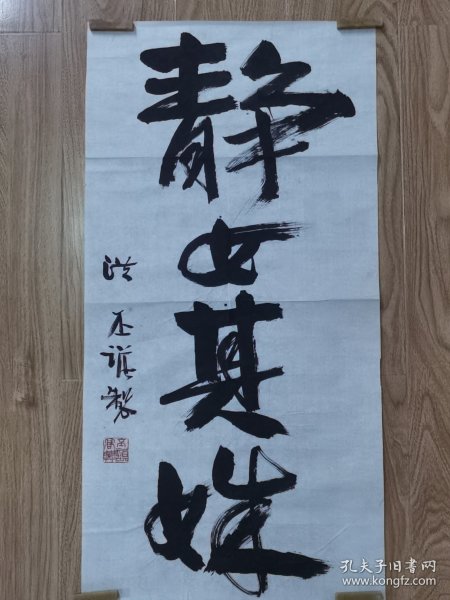 静女其姝
洪丕谟制
孔夫子旧书网
www.kongfz.com